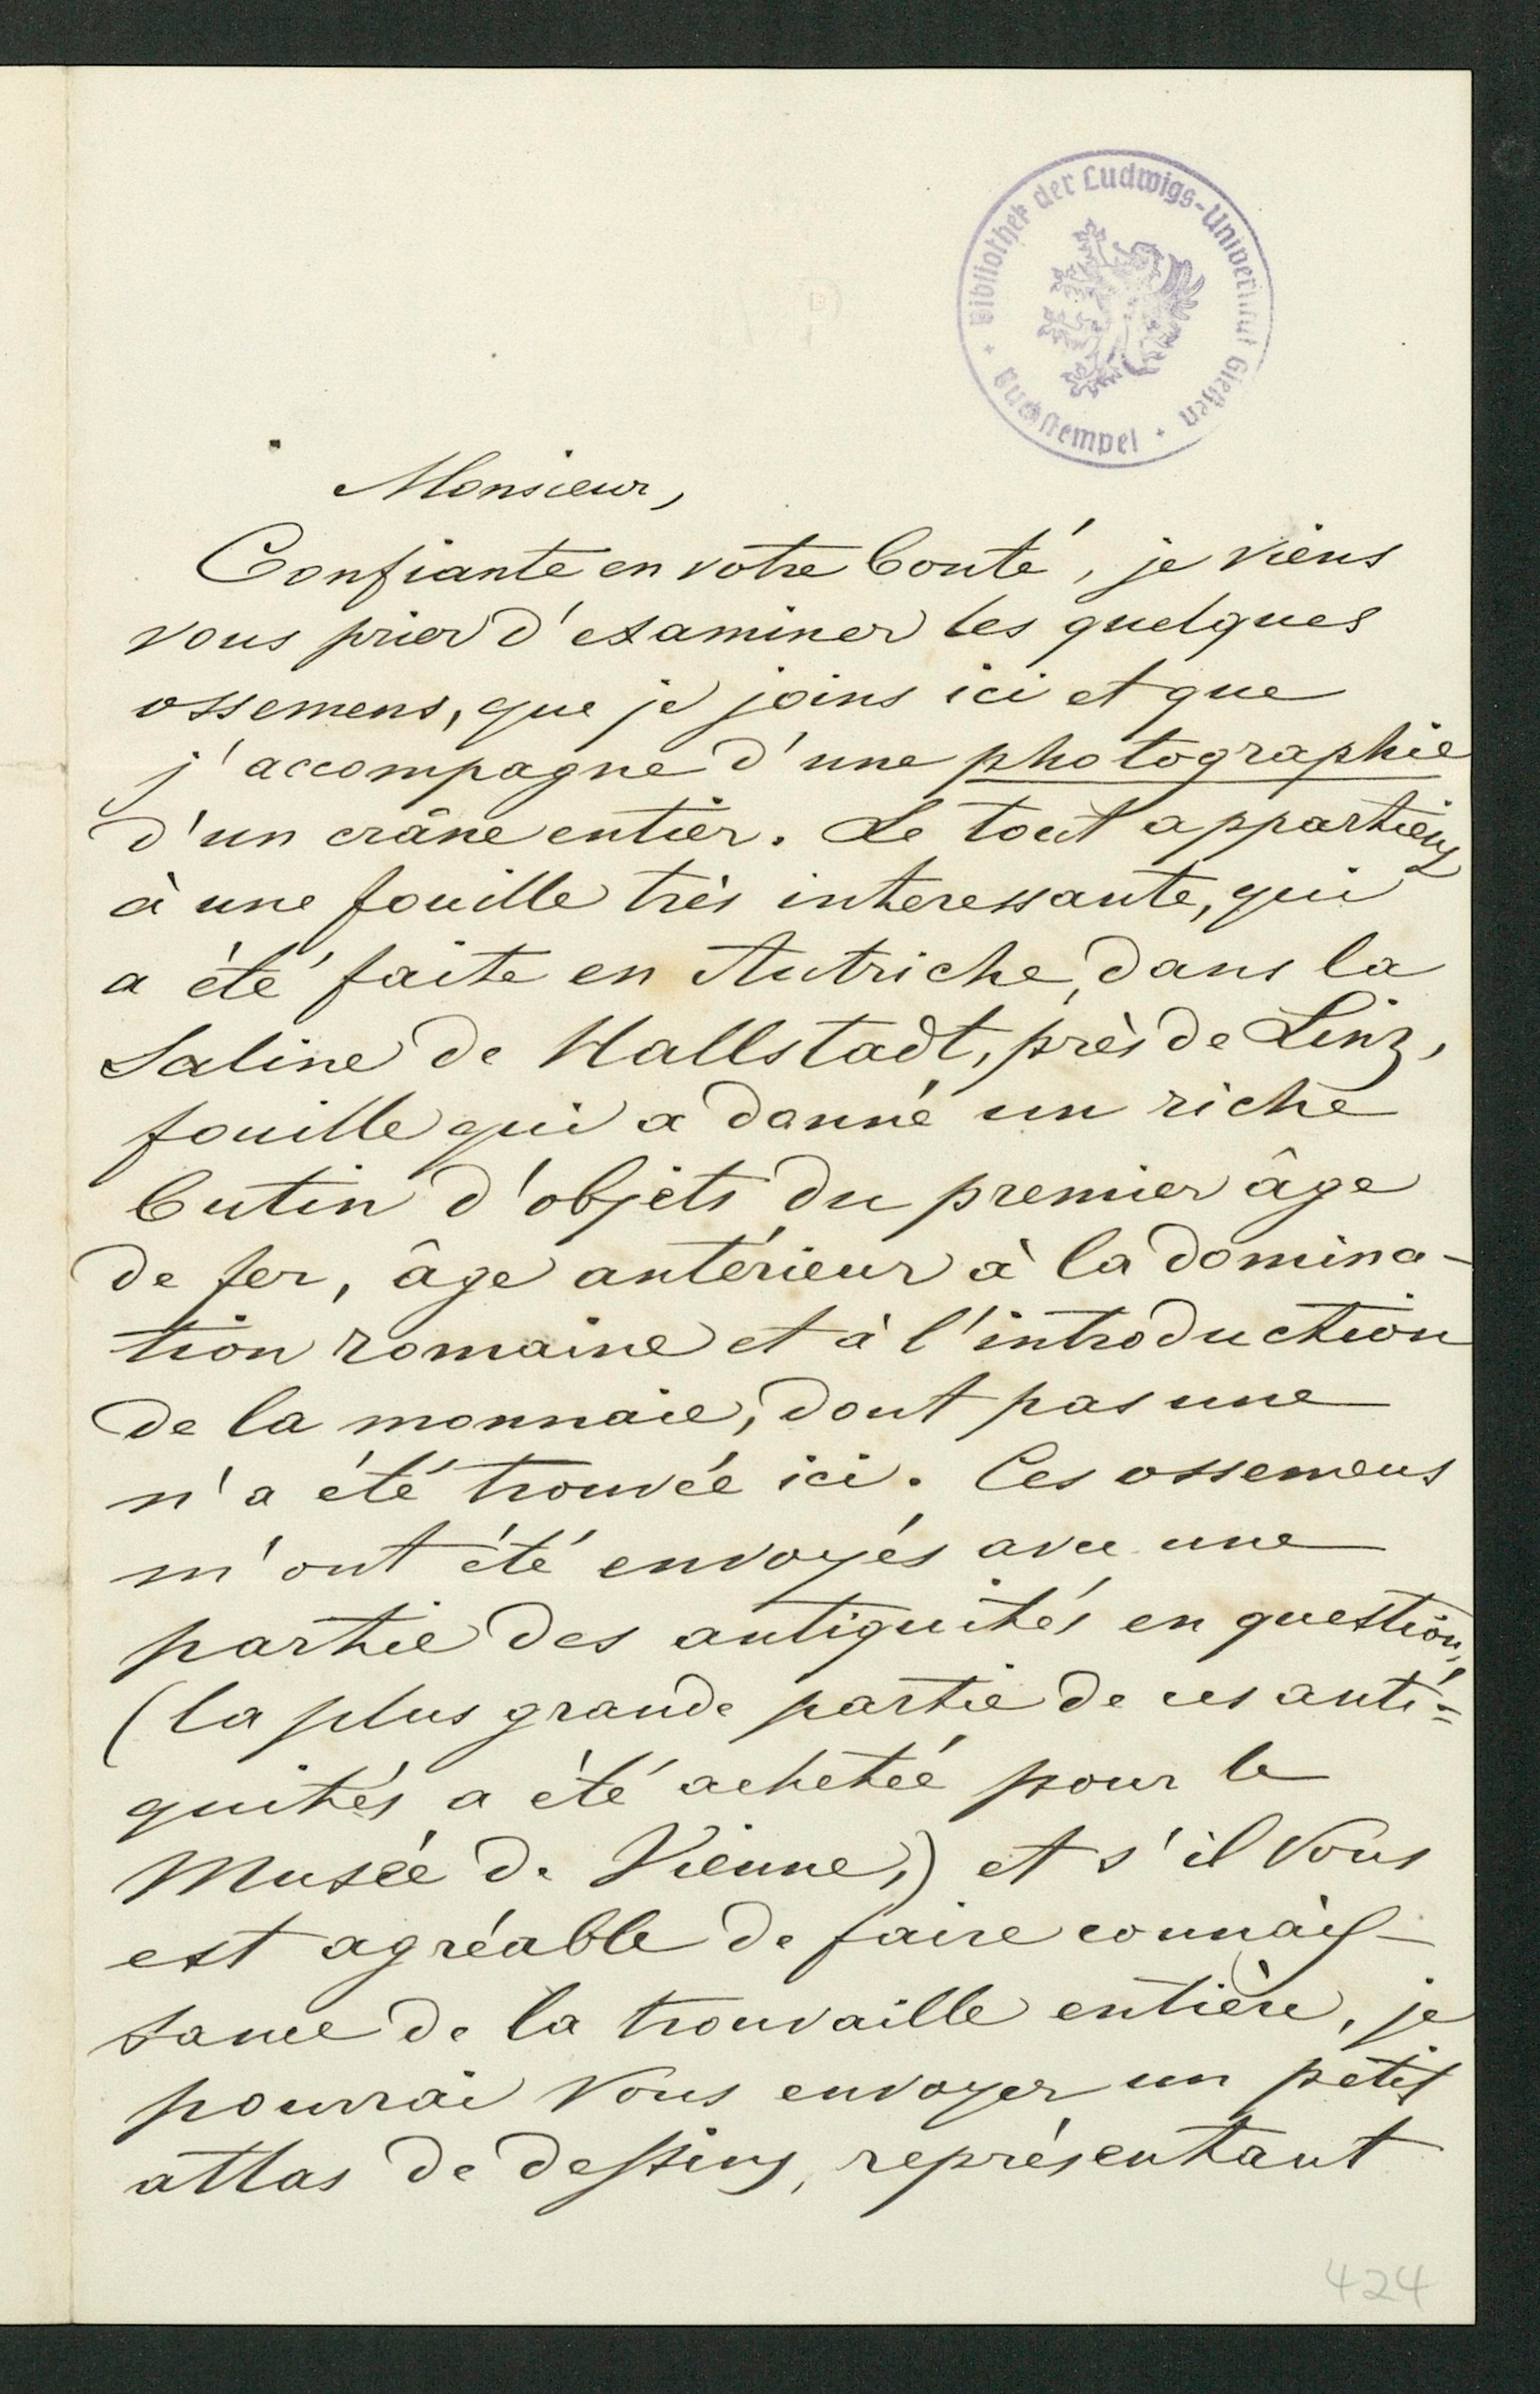 Bibliothek der Ludwigs-Universität Gießen
Buchstempel
Monsieur,
Confiante en votre bonté, je viens
vous prier d'examiner les quelques
ossemens, que je joins ici et que
j'accompagne d'une photographie
d'un crâne entier. Le tout appartient
à une fouille très interessante, qui
a été faite en Autriche, dans la
Saline de Hallstadt, près de Linz,
fouille qui a donné un riche
butin d'objets du premier âge
de fer, âge antérieur à la domina-
tion romaine et à l'introduction
de la monnaie, dont pas une
n'a été trouvée ici. Ces ossemens
m'ont été envoyés avec une
partie des antiquités en question,
(la plus grande partie de ces anti=
quités a été achetée pour le
Musée de Vienne,) et s'il vous
est agréable de faire connais-
sance de la trouvaille entière, je
pourrai vous envoyer un petit
atlas de dessins, représentant
424